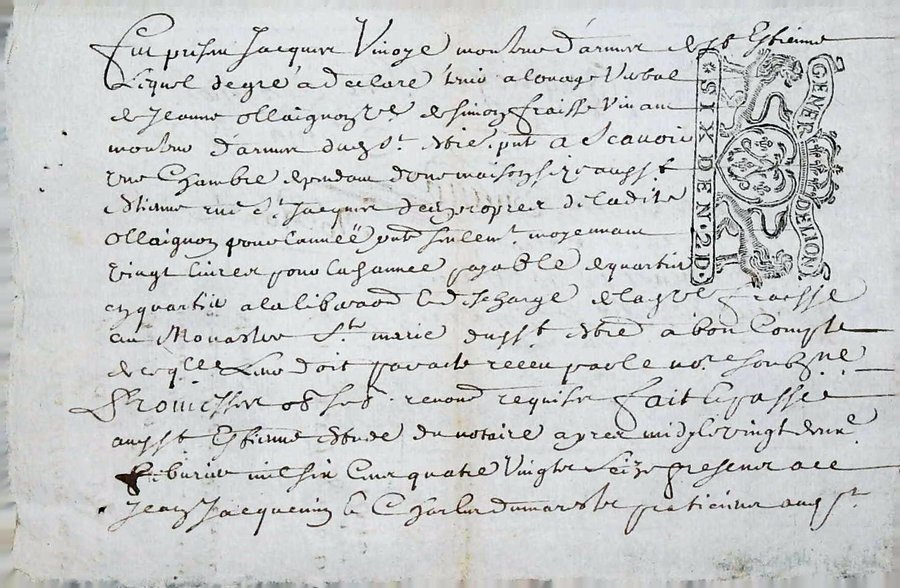 Fut présent Jacques Vinoye monteur d'armes de St Estienne
Lequel de gré a declaré tenir a louage verbal
de Jeanne ollaignon vve de simon fraisse vivant
monteur d'armes dudt St. Esne. pnt A Scavoir
une Chambre dependant d'une maison size audt St
Estienne rue St. Jacques des propres de ladite
ollaignon pour l'année pnte seulemt. moyennant
vingt livres pour lad année payable de quartier
en quartier a la descharge de lad vve fraisse
au Monastere Ste marie dudt St Esne a bon Compte
de ce qlle Leur doit par acte receu par le nore soubzne
Promesses obligé. renoncé requises fait & passé
audt St Estienne Estude du notaire apres midy le vingt deuxe
feburier mil six Cens quatre Vingtz Seize presens a ce
Jean Jacquemin & Charles dumarest praticiens audt St
GENER DE LION
SIX DEN. 2 D.